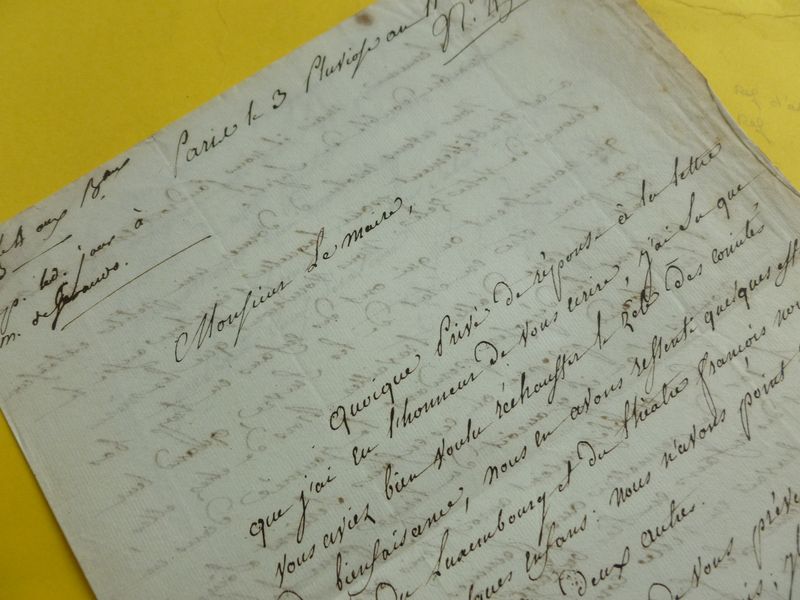 Paris le 3 Pluviose an 11
N.
aux Baux
jour à
m. de Gerando.
Monsieur Le maire,
Quoique Privé de réponse à la lettre
que j'ai eu l'honneur de vous écrire, j'ai su que
vous aviez bien voulu réchauffer le zèle des comités
De bienfaisance, nous en avons ressenti quelques eff
du Luxembourg et du théâtre françois nou
enfans: nous n'avons point
deux autres.
De vous préve